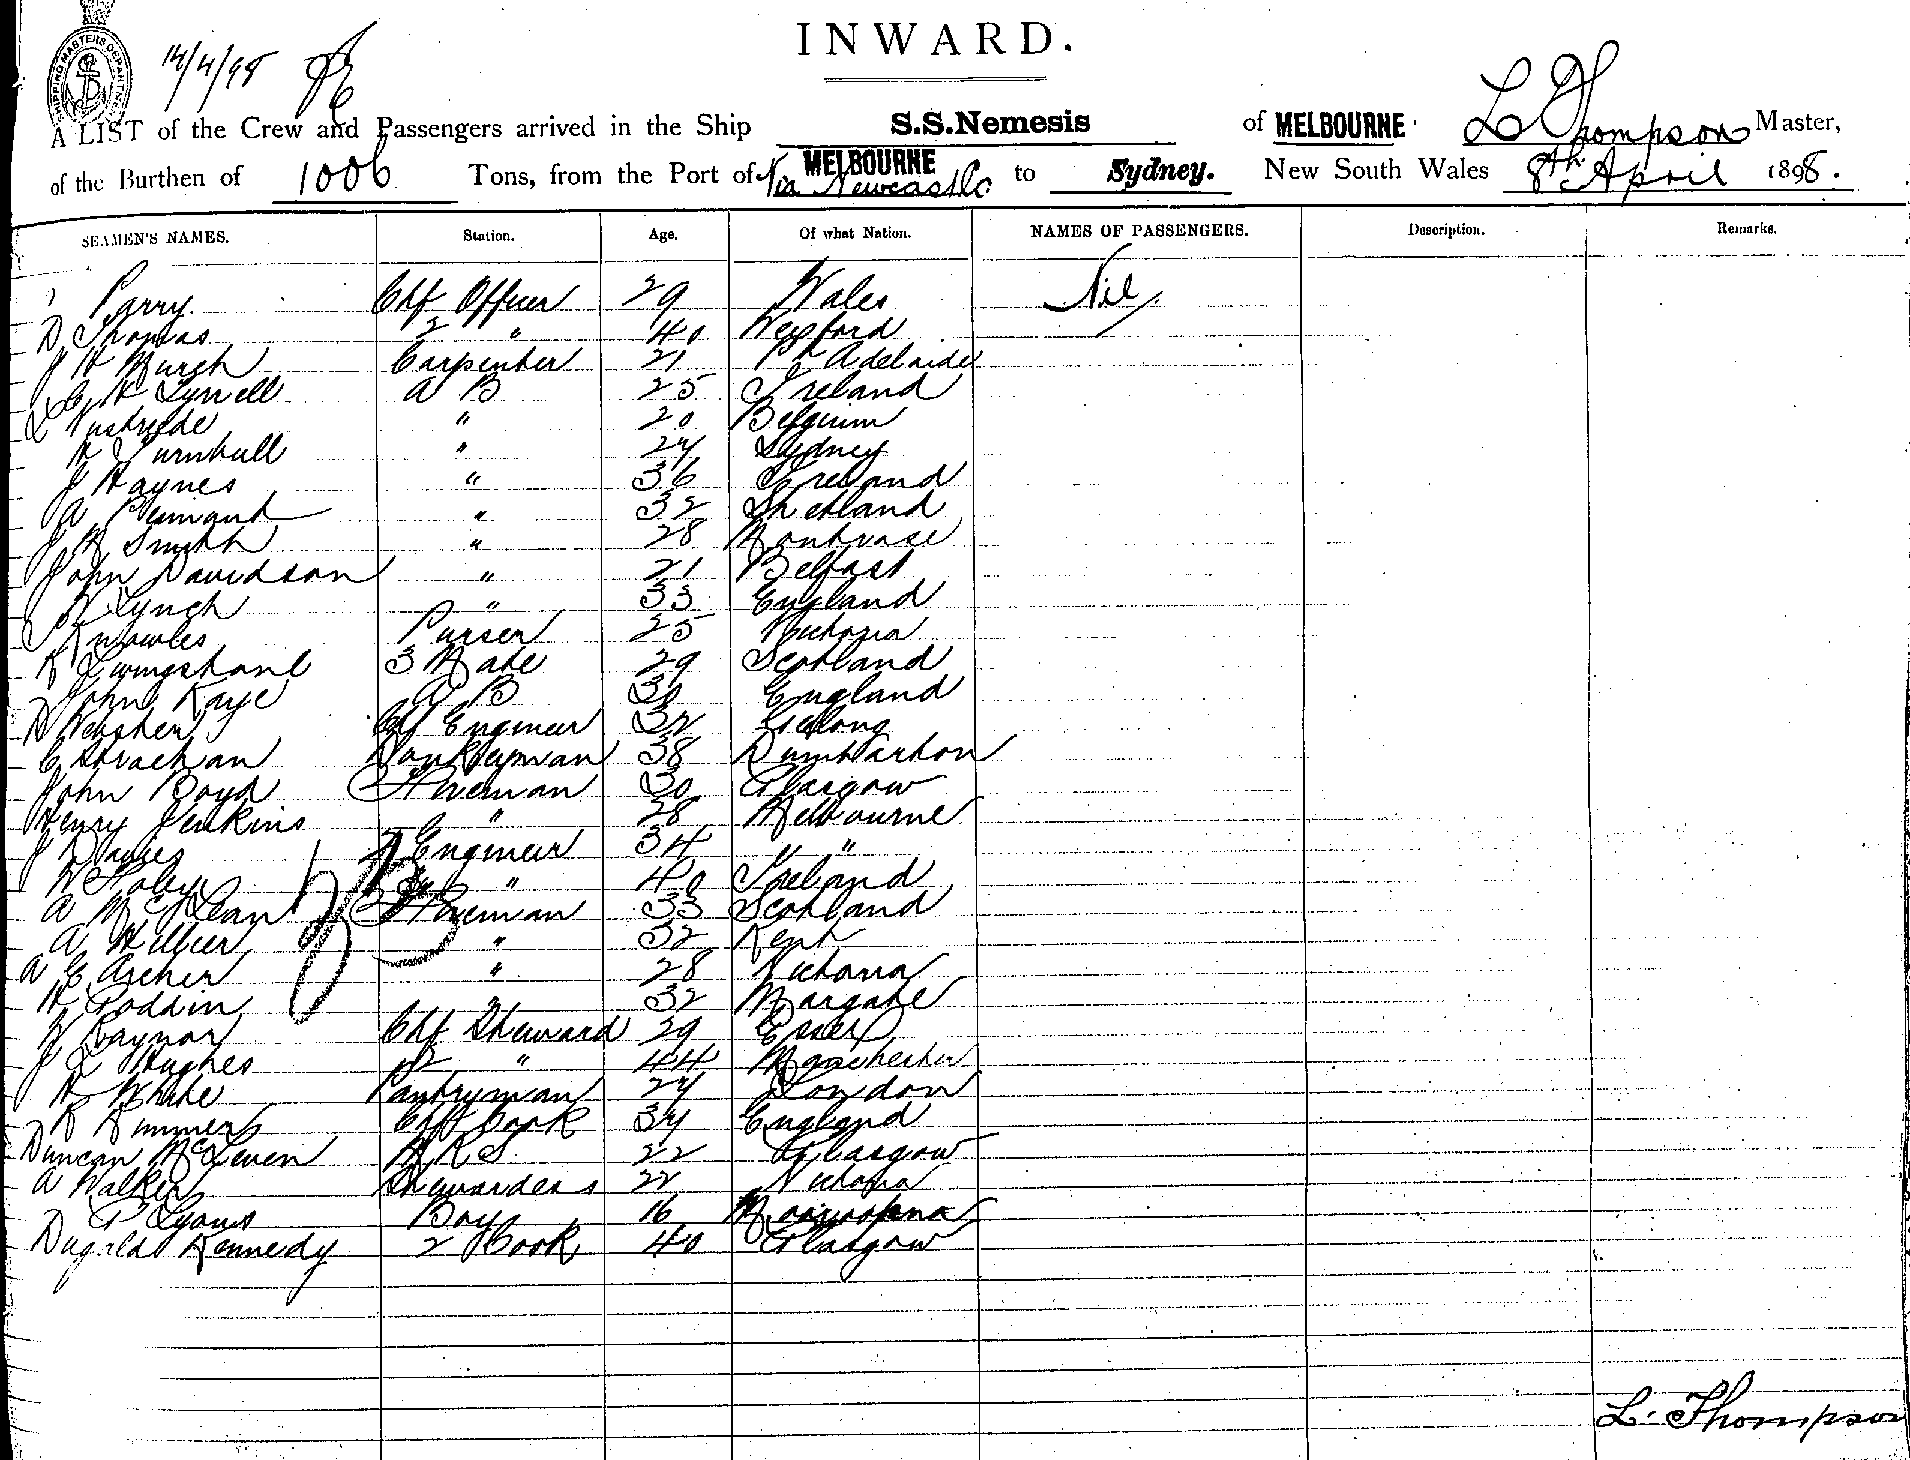 INWARD.
SHIPPING MASTERS DEPARTMENT
14/4/98
A LIST of the Crew and Passengers arrived in the Ship S.S.Nemesis of MELBOURNE L Thompson Master,
of the Burthen of 1006 Tons, from the Port of MELBOURNE Via Newcastle to Sydney. New South Wales 8th April 1898.
SEAMEN'S NAMES. Station. Age. Of what Nation. NAMES OF PASSENGERS. Description. Remarks.
Parry Chf Officer 29 Wales Nil
D Thomas 2 " 40 Wexford
J H Murch Carpenter 21 Pt Adelaide
C H Tyrrell A B 25 Ireland
L " 20 Belgium
H Turnbull " 24 Sydney
J Haynes " 36 Ireland
A " 32 Shetland
J H Smith " 28 Montrose
John Davidson " 21 Belfast
Lynch " 33 England
Knowles Purser 25 Victoria
R Livingstone 3 Mate 29 Scotland
John Kaye A B 30 England
D Webster Chf Engineer 32 Geelong
C Strachan Donkeyman 38 Dumbarton
John Boyd Fireman 30 Glasgow
Henry Jenkins " 28 Melbourne
J Davies 2 Engineer 34 "
W Foley 3 " 40 Ireland
A McLean Fireman 33 Scotland
A Hillier " 32 Kent
A E Archer " 28 Victoria
H Poddin " 32 Margate
W Raynor Chf Steward 29 Essex
J L Hughes 2 " 44 Manchester
H White Pantryman 24 London
R Rimmer Chf Cook 34 England
Duncan McLeven M R S 22 Glasgow
A Walker Stewardess 22 Victoria
P Lyons Boy 16 Mooroopna
Dugald Kennedy 2 Cook 40 Glasgow
L. Thompson